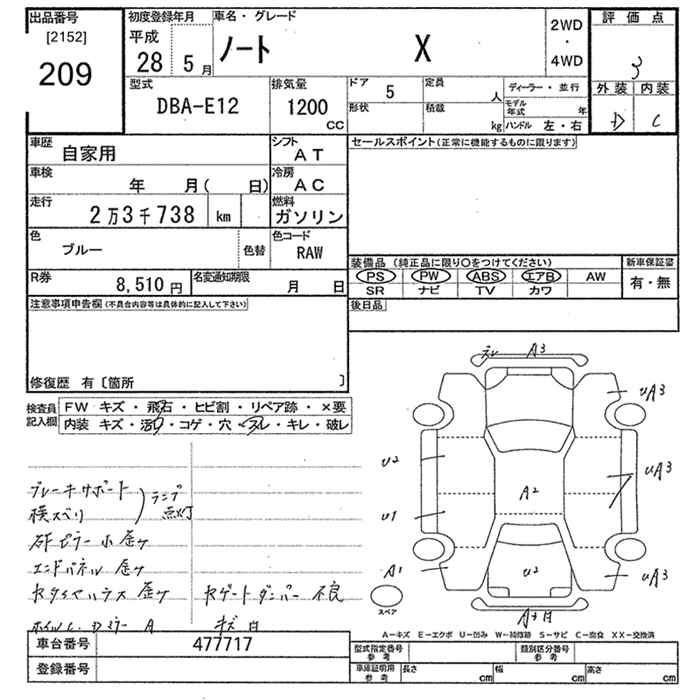 出品番号
[2152]
209
初度登録年月
平成
28 5月
車名・グレード
ノート X
2WD
・
4WD
評価点
3
外装 内装
D C
型式
DBA-E12
排気量
1200
CC
ドア 5
定員 人
形状
積載 kg
ディーラー・並行
モデル年式 年
ハンドル 左・右
車歴
自家用
シフト
AT
セールスポイント(正常に機能するものに限ります)
車検
年 月( 日)
冷房
AC
走行
2万3千738 km
燃料
ガソリン
色
ブルー
色替
色コード
RAW
装備品 (純正品に限り〇をつけてください)
新車保証書
PS PW ABS エアB AW
有・無
SR ナビ TV カワ
R券
8,510 円
名変通知期限
月 日
後日品
注意事項申告欄(不具合内容等は具体的に記入して下さい)
修復歴 有〔箇所 〕
検査員記入欄
FW キズ・飛石・ヒビ割・リペア跡・×要
内装 キズ・汚れ・コゲ・穴・スレ・キレ・破レ
ブレーキサポート
横スベリ
ランプ
点灯
エンドパネル 歪ケ
不良
A3
uA3
u2
uA3
A2
u1
A1
uA3
u2
スペア
A－キズ E－エクボ U－凹み W－補修跡 S－サビ C－腐食 XX－交換済
車台番号 477717
登録番号
型式指定番号 参考
類別区分番号 参考
車庫証明用 参考
長さ cm
幅 cm
高さ cm